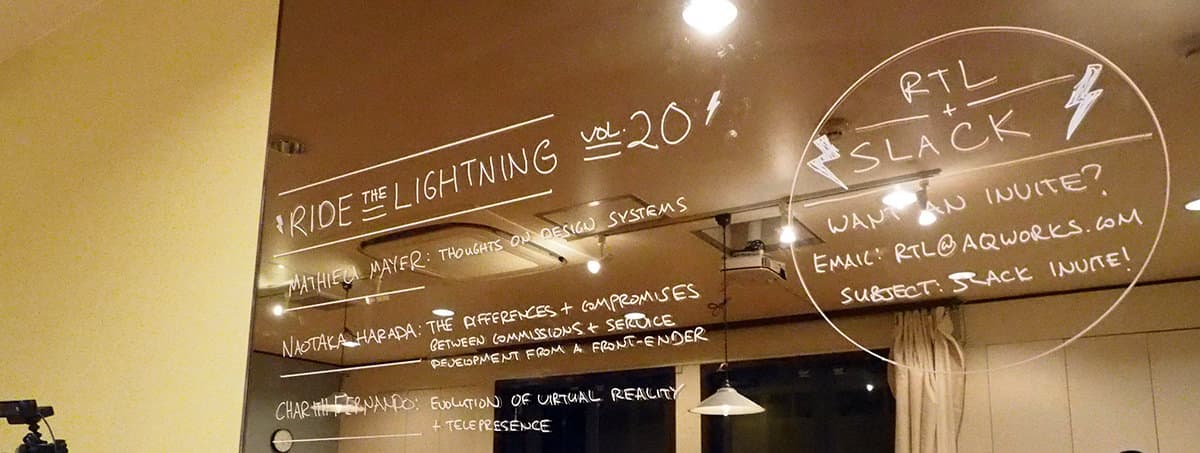 RIDE THE LIGHTNING VOL. 20
MATHIEU MAYER: THOUGHTS ON DESIGN SYSTEMS
NAOTAKA HARADA: THE DIFFERENCES + COMPROMISES
BETWEEN COMMISSIONS + SERVICE
DEVELOPMENT FROM A FRONT-ENDER
CHARITH FERNANDO: EVOLUTION OF VIRTUAL REALITY
+ TELEPRESENCE
RTL
+
SLACK
WANT AN INVITE?
EMAIL: RTL@AQWORKS.COM
SUBJECT: SLACK INVITE!